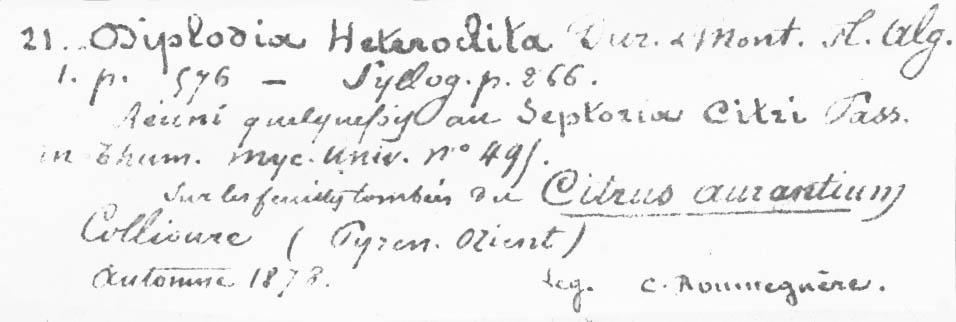 21. Diplodia Heteroclita Dur. & Mont. Fl. Alg.
1. p. 576 — Syllog. p. 266.
Réuni quelquefois au Septoria Citri Pass.
in Thum. Myc. Univ. n° 495.
Sur les feuilles tombées du Citrus aurantium
Collioure (Pyren. Orient)
Automne 1873. Leg. C. Roumeguère.